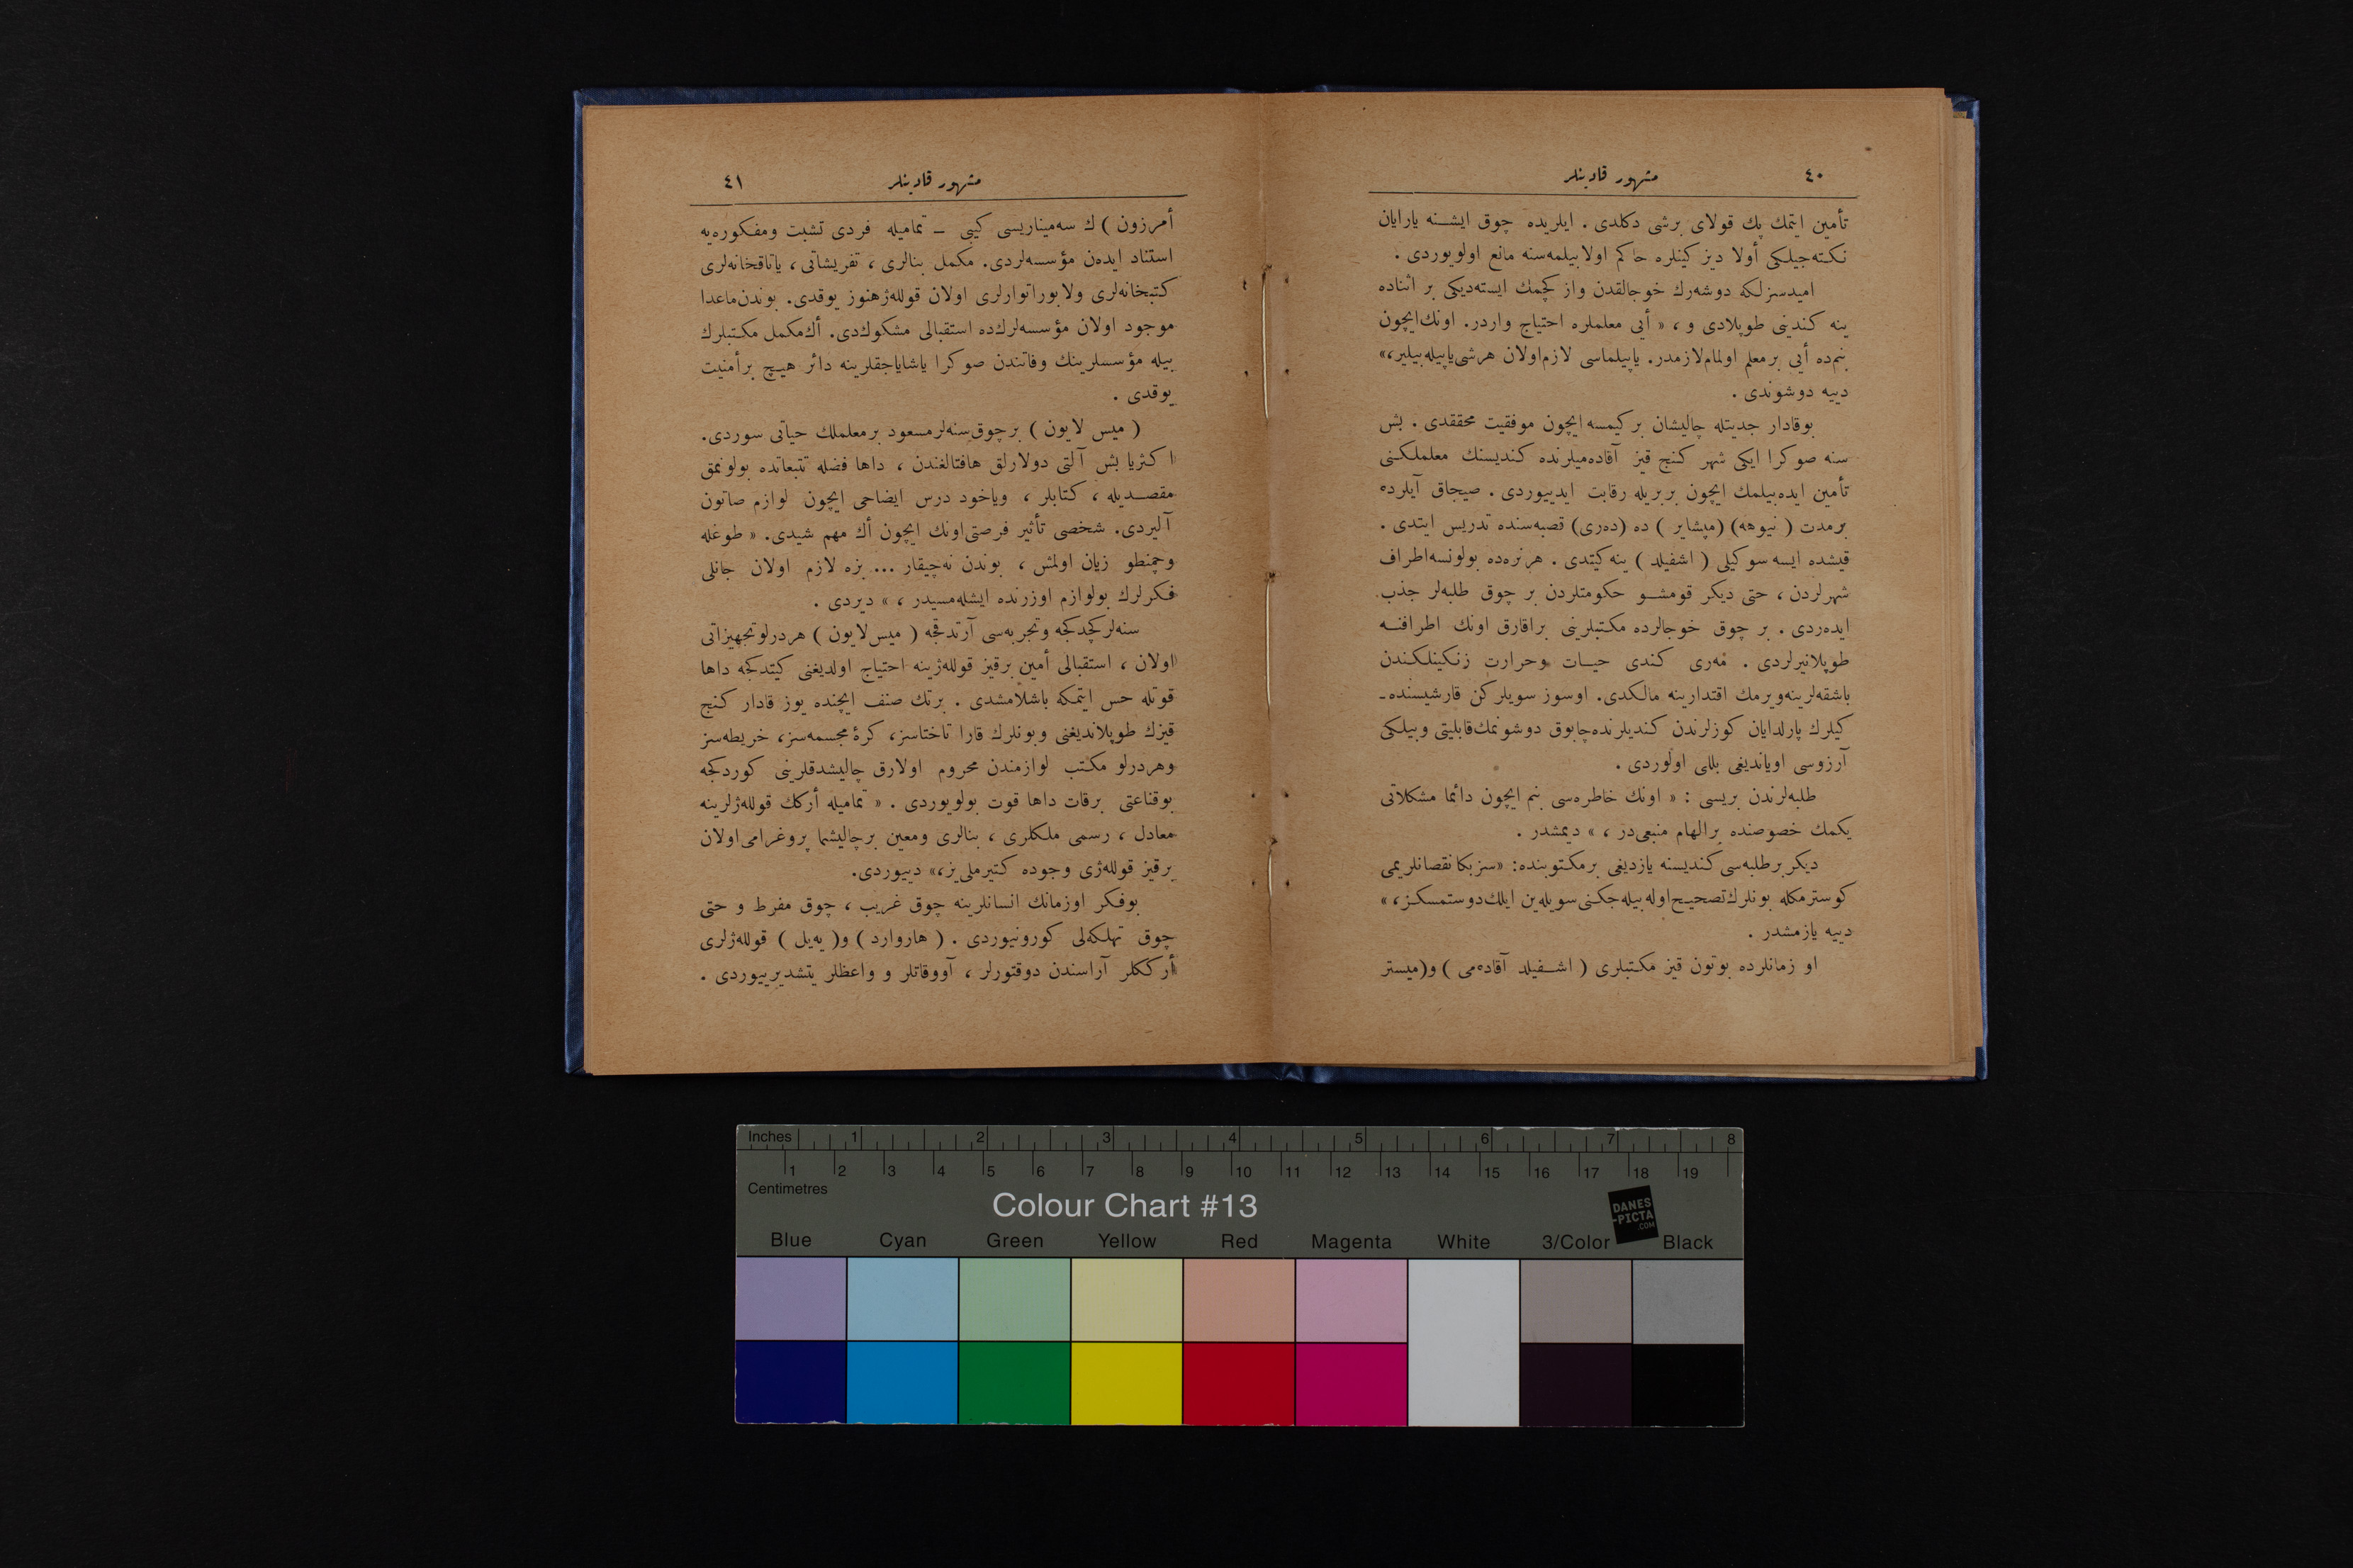 ٤٠
مشهور قادينلر
تأمين ايتمك پك قولاى برشى دكلدى . ايلريده چوق ايشنه يارايان
نكته‌جيلكى أولا ديزكينلره حاكم اولابيلمه‌سنه مانع اولويوردى .
اميدسزلكه دوشه‌رك خوجالقدن واز كچمك ايسته‌ديكى بر اثناده
ينه كندينى طوپلادى و ، « أيى معلملره احتياج واردر. اونك‌ايچون
بنم‌ده أيى برمعلم اولمام‌لازمدر. ياپيلماسى لازم‌اولان هرشى‌ياپيله‌بيلير،»
دييه دوشوندى .
بوقادار جديتله چاليشان بركيمسه ايچون موفقيت محققدى . بش
سنه صوكرا ايكى شهر كنج قيز آقاده‌ميلرنده كنديسنك معلملكنى
تأمين ايده‌بيلمك ايچون بربريله رقابت ايدييوردى . صيجاق آيلرده
برمدت ( نيوهه) (مپشاير ) ده (ده‌رى) قصبه‌سنده تدريس ايتدى .
قيشده ايسه سوكيلى ( اشفيلد ) ينه كيتدى . هرنره‌ده بولونسه‌اطراف
شهرلردن ، حتى ديكر قومشو حكومتلردن بر چوق طلبه‌لر جذب
ايده‌ردى . بر چوق خوجالرده مكتبلرينى براقارق اونك اطرافنه
طوپلانيرلردى . مه‌رى كندى حيات وحرارت زنكينلكندن
باشقه‌لرينه‌ويرمك اقتدارينه مالكدى. اوسوز سويلركن قارشيسنده-
كيلرك پارلدايان كوزلرندن كنديلرنده‌چابوق دوشونمك‌قابليتى وبيلكى
آرزوسى اوياندينى بللى اولوردى .
طلبه‌لرندن بريسى : « اونك خاطره‌سى بنم ايچون دائما مشكلاتى
يكمك خصوصنده برالهام منبعى‌در ، » ديمشدر .
ديكر برطلبه‌سى كنديسنه يازدينى برمكتوبنده: «سز بكا نقصانلريمى
كوسترمكله بونلرك‌تصحيح‌اوله‌بيله‌جكنى‌سويله‌ين ايلك‌دوستمسكز، »
دييه يازمشدر .
او زمانلرده بوتون قيز مكتبلرى ( اشفيلد آقاده‌مى ) و(ميستر
مشهور قادينلر
٤١
أمرزون ) ك سه‌ميناريسى كيبى ـ تماميله فردى تشبث ومفكوره‌يه
استناد ايده‌ن مؤسسه‌لردى. مكمل بنالرى ، تفريشاتى ، ياتاقخانه‌لرى
كتبخانه‌لرى ولابوراتوارلرى اولان قولله‌ژهنوز يوقدى. بوندن‌ماعدا
موجود اولان مؤسسه‌لرك‌ده استقبالى مشكوك‌دى. أك‌مكمل مكتبلرك
بيله مؤسسلرينك وفاتندن صوكرا ياشاياجقلرينه دائر هيچ برأمنيت
يوقدى .
( ميس لايون ) برچوق‌سنه‌لرمسعود برمعلملك حياتى سوردى.
اكثريا بش آلتى دولارلق هافتالغندن ، داها فضله تتبعاتده بولونمق
مقصديله ، كتابلر ، وياخود درس ايضاحى ايچون لوازم صاتون
آليردى. شخصى تأثير فرصتى‌اونك ايچون أك مهم شيدى. « طوغله
وچمنطو زيان اولمش ، بوندن نه‌چيقار ... بزه لازم اولان جانلى
فكرلرك بولوازم اوزرنده ايشله‌مسيدر ، » ديردى .
سنه‌لركچدكجه وتجربه‌سى آرتدقجه ( ميس‌لايون ) هردرلوتجهيزاتى
اولان ، استقبالى أمين برقيز قولله‌ژينه احتياج اولديغنى كيتدكجه داها
قوتله حس ايتمكه باشلامشدى . برتك صنف ايچنده يوز قادار كنج
قيزك طوپلانديغنى وبونلرك قارا تاختاسز، كرۀ مجسمه‌سز، خريطه‌سز
وهردرلو مكتب لوازمندن محروم اولارق چاليشدقلرينى كوردكجه
بوقناعتى برقات داها قوت بولويوردى . « تماميله أركك قولله‌ژلرينه
معادل ، رسمى ملكلرى ، بنالرى ومعين برچاليشما پروغرامى‌اولان
برقيز قولله‌ژى وجوده كتيرملى‌يز،» دييوردى.
بوفكر اوزمانك انسانلرينه چوق غريب ، چوق مفرط و حتى
چوق تهلكه‌لى كورونيوردى . ( هاروارد ) و( يه‌يل ) قولله‌ژلرى
أرككلر آراسندن دوقتورلر ، آووقاتلر و واعظلر يتشديرييوردى .
Inches 1 2 3 4 5 6 7 8
1 2 3 4 5 6 7 8 9 10 11 12 13 14 15 16 17 18 19
Centimetres
Colour Chart #13
DANES
-PICTA
.COM
Blue Cyan Green Yellow Red Magenta White 3/Color Black